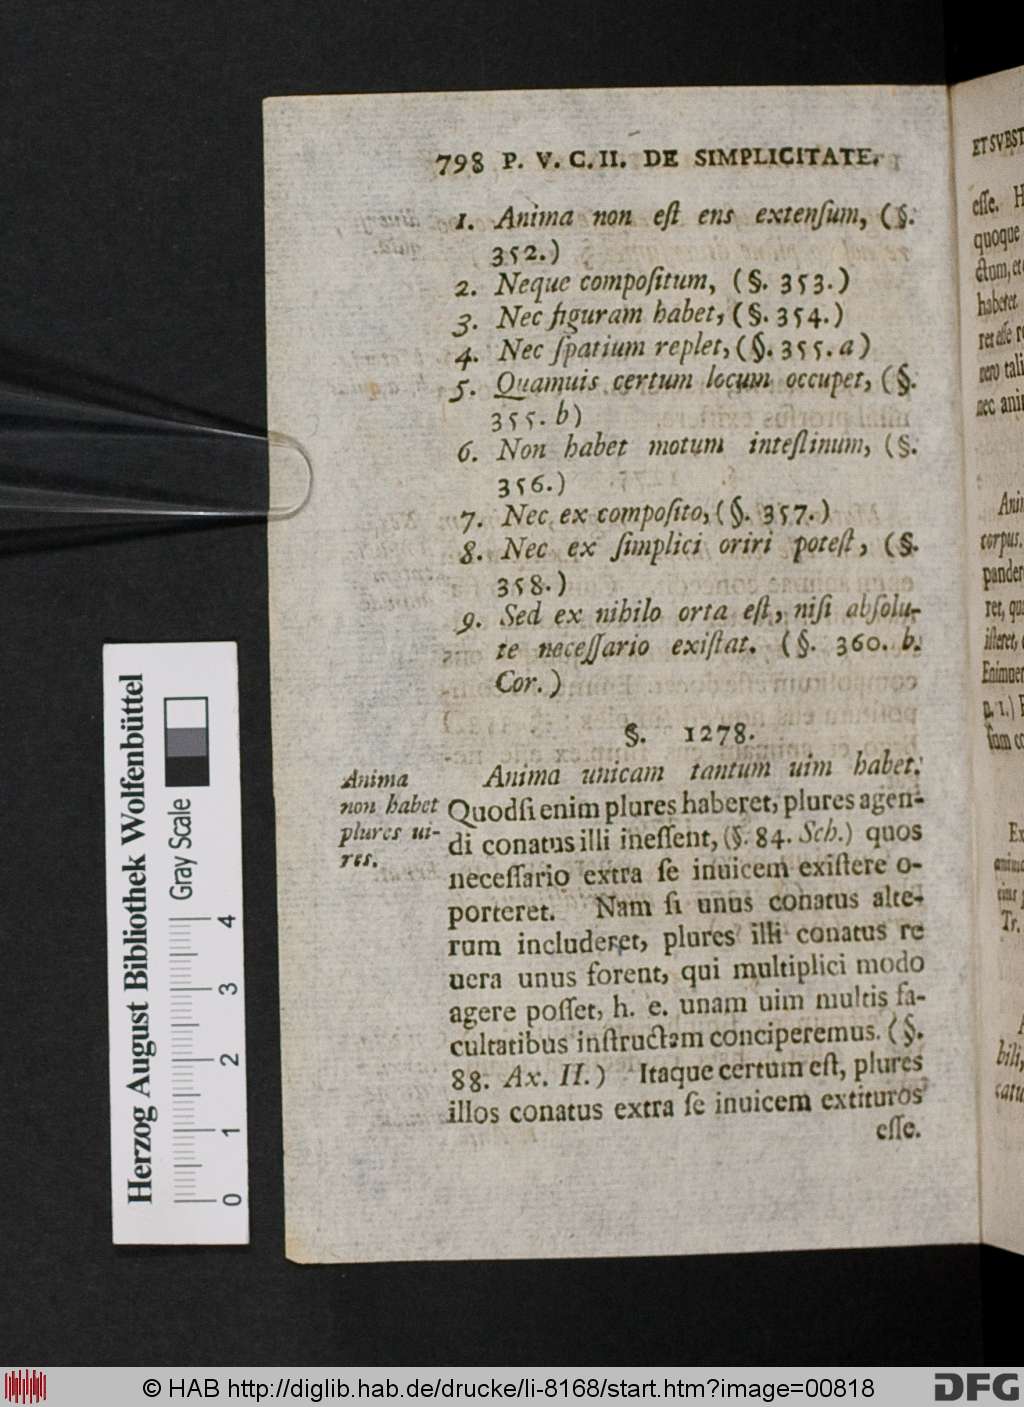 798 P. V. C. II. DE SIMPLICITATE.
1. Anima non eſt ens extenſum, (§.
352.)
2. Neque compoſitum, (§. 353.)
3. Nec figuram habet, (§. 354.)
4. Nec ſpatium replet, (§. 355. a)
5. Quamuis certum locum occupet, (§.
355. b)
6. Non habet motum inteſtinum, (§.
356.)
7. Nec ex compoſito, (§. 357.)
8. Nec ex ſimplici oriri poteſt, (§.
358.)
9. Sed ex nihilo orta eſt, niſi abſolu-
te neceſſario exiſtat. (§. 360. b.
Cor.)
§. 1278.
Anima
non habet
plures ui-
res.
Anima unicam tantum uim habet.
Quodſi enim plures haberet, plures agen-
di conatus illi ineſſent, (§. 84. Sch.) quos
neceſſario extra ſe inuicem exiſtere o-
porteret. Nam ſi unus conatus alte-
rum includeret, plures illi conatus re
uera unus forent, qui multiplici modo
agere poſſet, h. e. unam uim multis fa-
cultatibus inſtructam conciperemus. (§.
88. Ax. II.) Itaque certum eſt, plures
illos conatus extra ſe inuicem extituros
eſſe.
ET SVBST
eſſe. H
quoque
ctum, et
haberet
ret eſſe r
uero tali
nec ani
Ani
corpus.
pander
ret, qu
iſteret,
Enimuer
p. 1.)
ſum co
Ex
anima
Tr.
bili,
catu
Herzog August Bibliothek Wolfenbüttel
Gray Scale
0 1 2 3 4
© HAB http://diglib.hab.de/drucke/li-8168/start.htm?image=00818
DFG